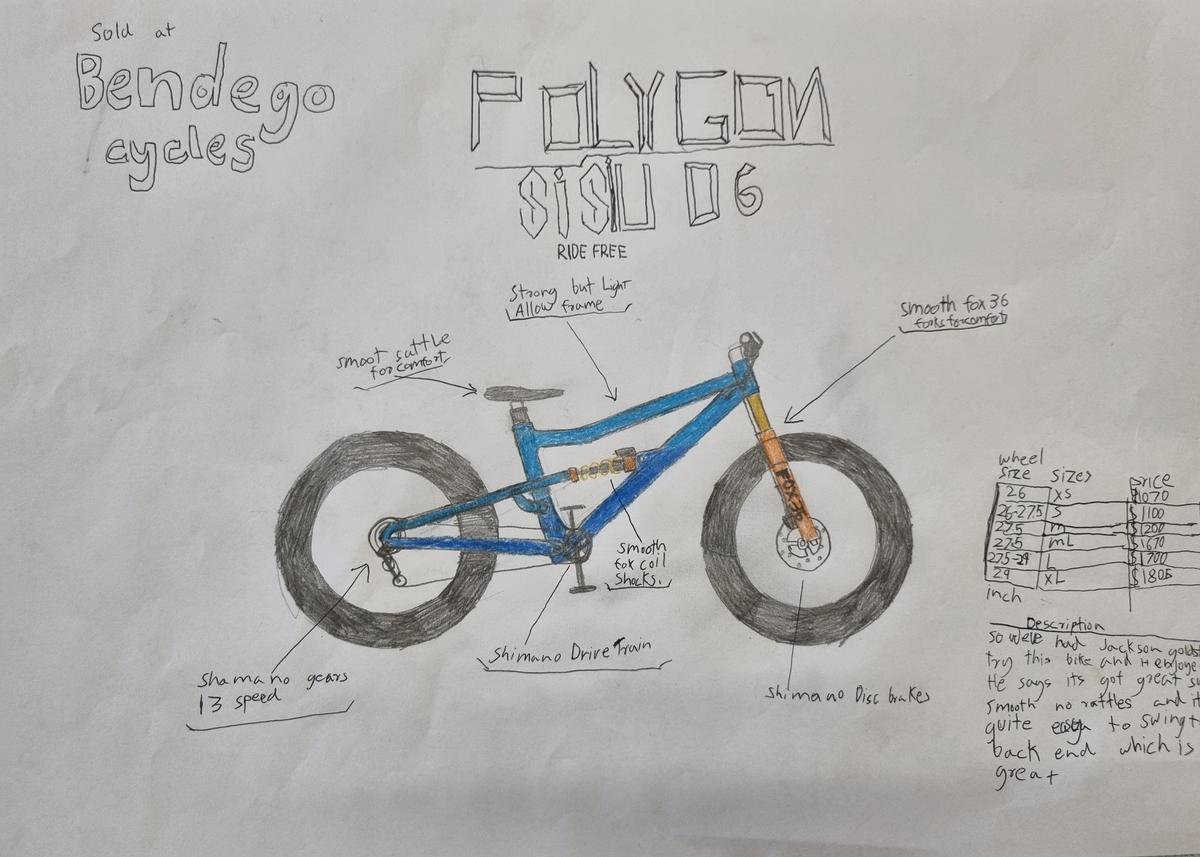 Sold at
Bendego
cycles
POLYGON
SiSU D6
RIDE FREE
Strong but Light
Allow frame
smooth fox 36
forks for comfort
smoot sattle
for comfort
FOX 36
smooth
fox coil
Shocks.
Shimano Drive Train
Shamano gears
13 speed
Shimano Disc brakes
wheel
Size Sizes Price
26 XS $1070
26-27.5 S $1100
27.5 m $1200
27.5 mL $1670
27.5-29 L $1700
29 XL $1805
inch
Description
So we've had Jackson
try this bike and H enjoye
He says its got great
smooth no rattles and it
quite easy to swing t
back end which is
great